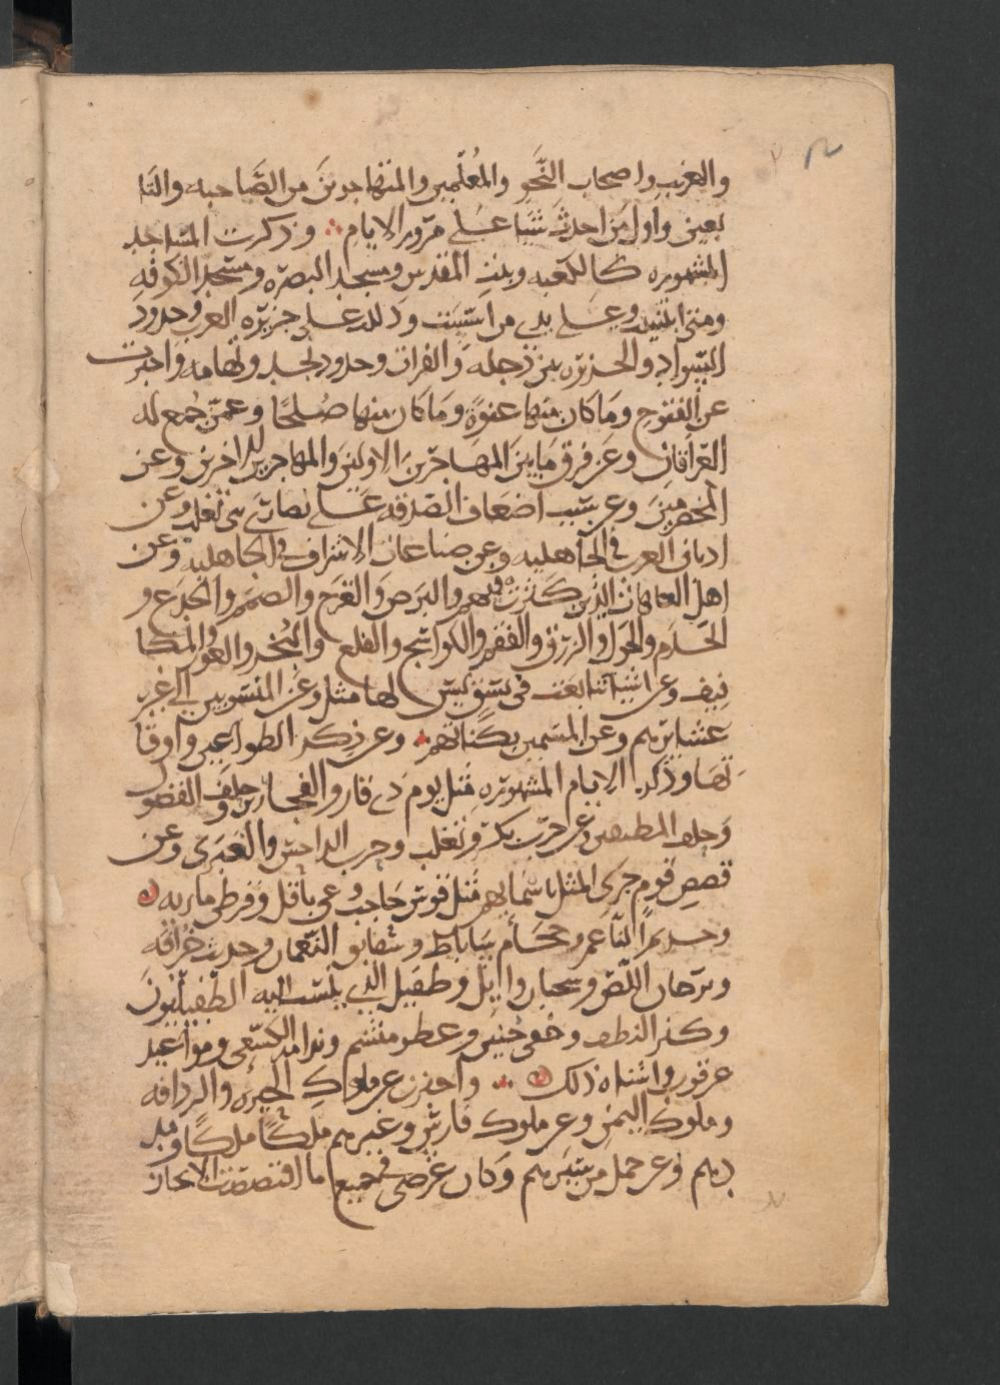 والغريب واصحاب النَّحو والمُعلّمين والمتهاجرينَ من الصَّاحبه والتا
بعين واول مَن احدثَ شيًا على مرور الايام ∴ وذكرت المسَاجد
المشهوره كالكعبه وبيت المقدس ومسجد البصرَه ومسَجد الكوفه
ومتى ابتنيت وعلى يدى من اسّسَت ودللت على جزيرَه العرب وحدود
السَواد والجزيره بين دجله والفرات وحدود نجد وتهامه واخبرت
عن الفتوح ومَا كان منها عنوةً ومَا كان منها صُلحًا وعمّن جُمع له
العرَاقان وعَن فرق مَا بينَ المهَاجرينَ الاولينَ والمهاجرين الاخرين وعن
المخضرمينَ وعن سَبب اضعَاف الصَدقه عَلى نصارَى بنى تغلب وعن
اديان العرب فى الجَاهليه وعن صناعات الاشراف فى الجاهليه وعن
اهل العاهات الذين كَثرت فيهم والبَرص وَالعَرَج والصَمَم والجَدع و
الجذام والحَوَل والزرَق والفقم والكواسَج والصَلع والبُخر والعور والمكا
فيف وعن اشيَا تتابعَت فى نسَق ليسَ لها مثل وعن المنسَوبين الى غير
عشايرهم وعن المسَمين بكُناهم ∴ وعن ذِكر الطواعين واوقا
تها وذكر الايام المشهورَه مثل يوم ذى قار والفجَارين وحلف الفضول
وَحلف المطيبين وعن حرب بكر وتغلب وحرب الداحس والغبرى وعن
قصص قوم جرَى المثل باسَمايهم مثل قوس حَاجب وعى باقل وقرطى ماريه
وخريم النّاعم وحجّام سَاباط وشقايق النّعمان وحديث خُرافه
وبرجان اللّص وسحبان وايل وطفيل الذى ينسَب اليه الطفيليون
وكنز النطف وخفى حُنين وعطر منشم وندامه الكسَعى ومواعيد
عرقوب واشباه ذلك ∴ واخبرت عن ملوك الحيره والردافه
وملوك اليمن وعن ملوك فارسَ وغيرهم ملكًا ملكًا ومُدد
هم وعن جمل من سيَرهم وكان غرضى فى جميع ما اقتصصَت الايجاز